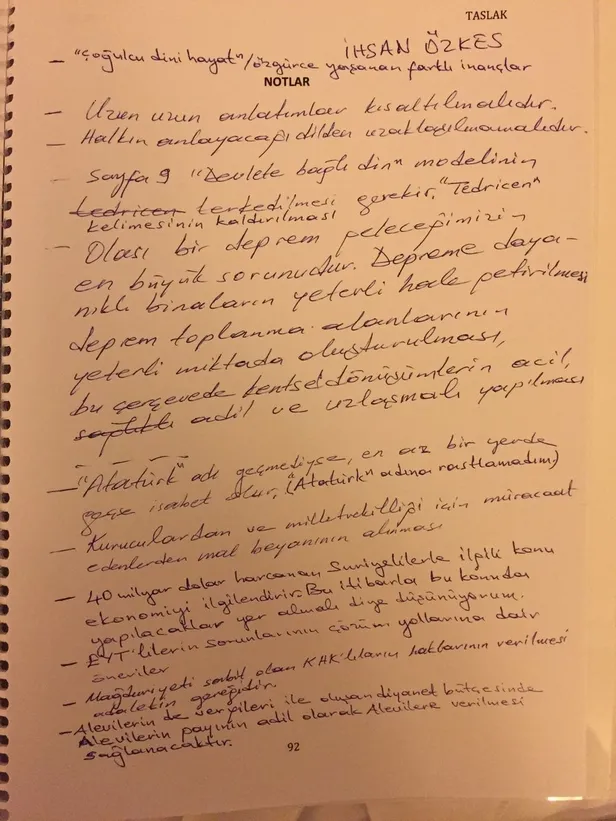 TASLAK
İHSAN ÖZKES
— "Çoğulcu dini hayat"/özgürce yaşanan farklı inançlar
NOTLAR
— Uzun uzun anlatımlar kısaltılmalıdır.
— Halkın anlayacağı dilden uzaklaşılmamalıdır.
— Sayfa 9 "Devlete bağlı din" modelinin
tedricen terkedilmesi gerekir. "Tedricen"
kelimesinin kaldırılması
— Olası bir deprem geleceğimizin
en büyük sorunudur. Depreme daya-
nıklı binaların yeterli hale getirilmesi
deprem toplanma alanlarının
yeterli miktada oluşturulması,
bu çerçevede kentsel dönüşümlerin acil,
sağlıklı adil ve uzlaşmalı yapılması
— "Atatürk" adı geçmediyse, en az bir yerde
geçse isabet olur. ("Atatürk" adına rastlamadım)
— Kuruculardan ve milletvekilliği için müracaat
edenlerden mal beyanının alınması
— 40 milyar dolar harcanan Suriyelilerle ilgili konu
ekonomiyi ilgilendirir. Bu itibarla bu konuda
yapılacaklar yer almalı diye düşünüyorum.
— EYT'lilerin sorunlarının çözüm yollarına dair
öneriler
— Mağduriyeti sabit olan KHK'lıların haklarının verilmesi
adaletin gereğidir.
— Alevilerin de vergileri ile oluşan diyanet bütçesinde
Alevilerin payının adil olarak Alevilere verilmesi
sağlanacaktır.
92